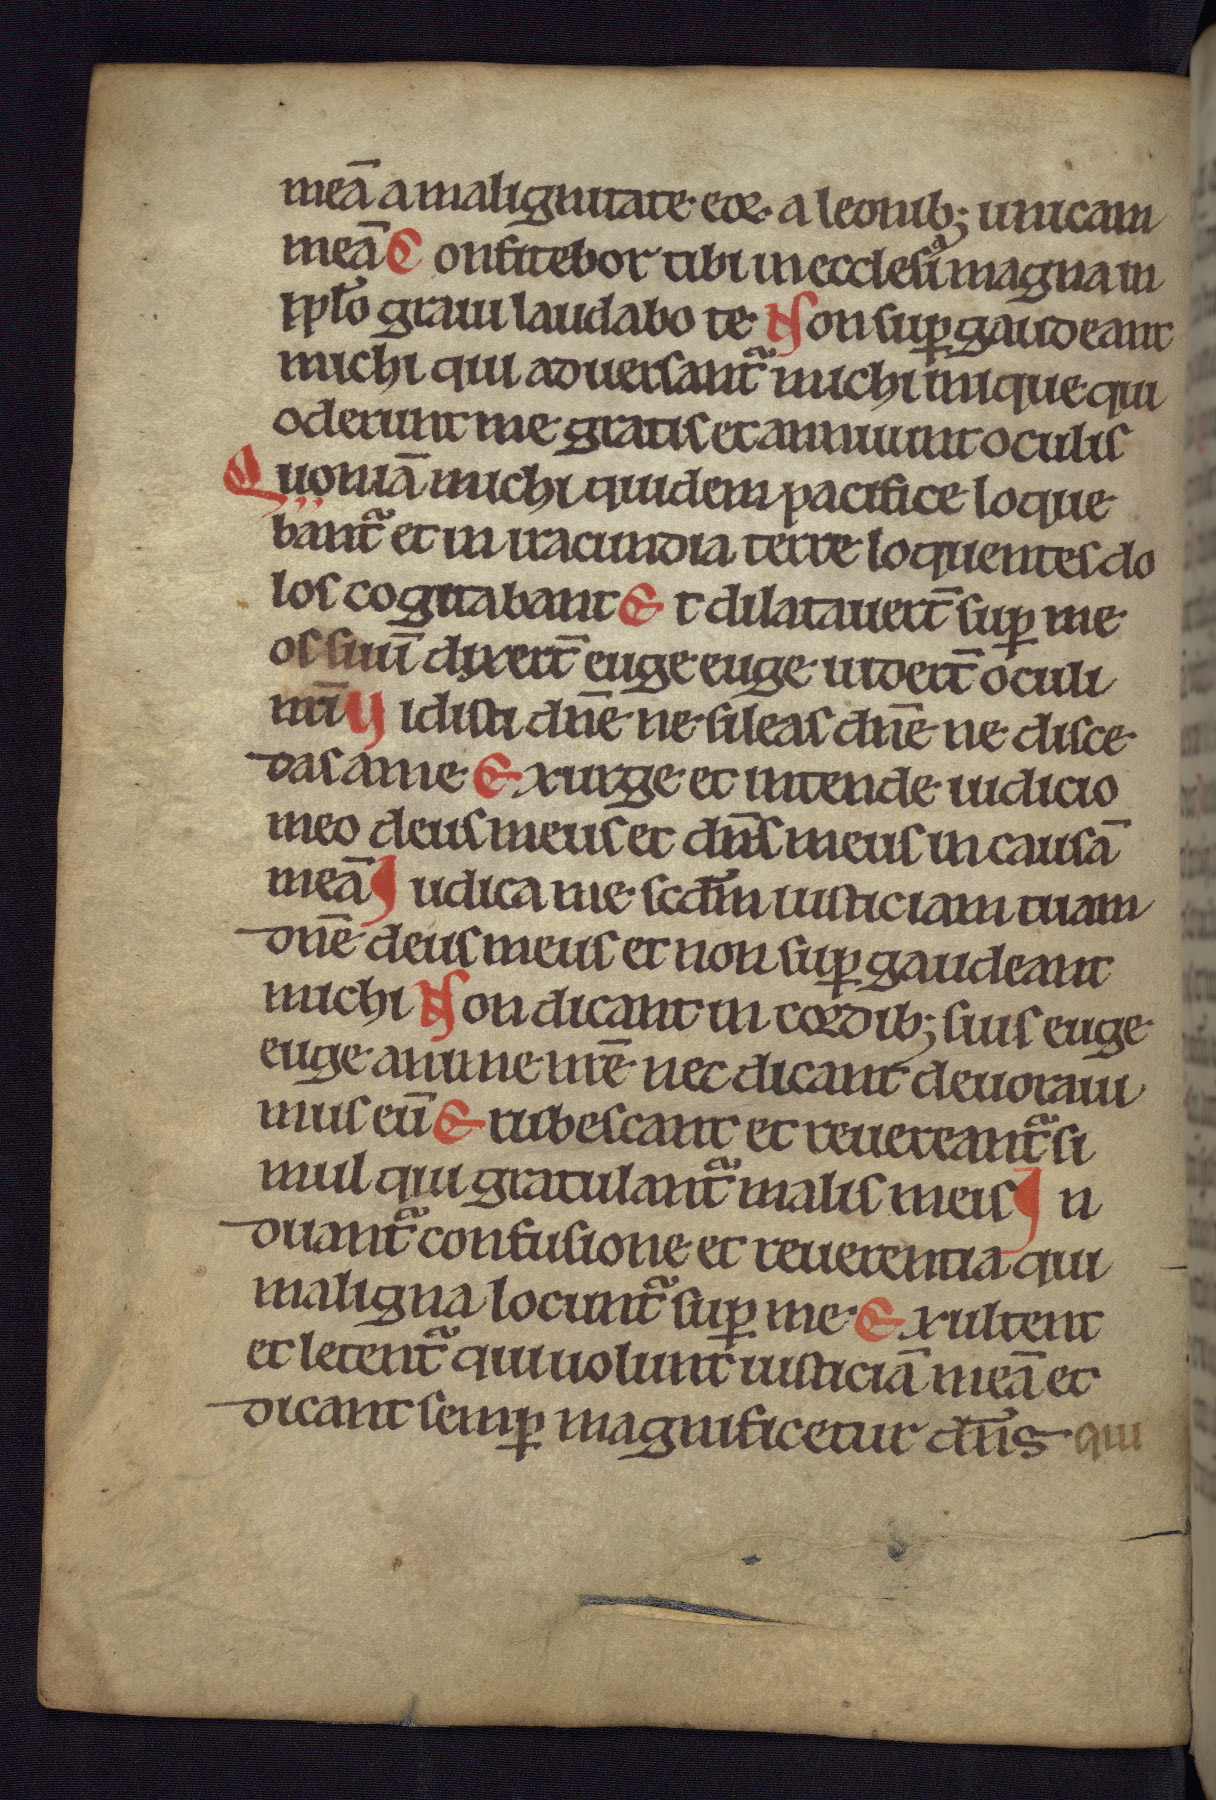 meā a malignitate eoꝝ· a leonib; unicam
meā Confitebor tibi in ecclesiᵃ magna in
ppl̄o graui laudabo te· Non suꝑgaudeant
michi qui aduersant᷑ michi inique qui
oderunt me gratis et annuunt oculis
Quoniā michi quidem pacifice loque
bant᷑ et in iracundia terre loquentes do
los cogitabant Et dilatauert̄ suꝑ me
os suū dixert̄ euge euge uidert̄ oculi
nr̄i Vidisti dn̄e ne sileas dn̄e ne disce
das a me Exurge et intende iudicio
meo deus meus et dn̄s meus in causā
meā Iudica me scdm̄ iusticiam tuam
dn̄e deus meus et non suꝑgaudeant
michi Non dicant in cordib; suis euge
euge anime nr̄e nec dicant deuoraui
mus eū Erubescant et reuereant᷑ si
mul qui gratulant᷑ malis meis In
duant᷑ confusione et reuerentia qui
maligna locunt᷑ suꝑ me· Exultent
et letent᷑ qui uolunt iusticiā meā et
dicant semꝑ magnificetur dn̄s qui